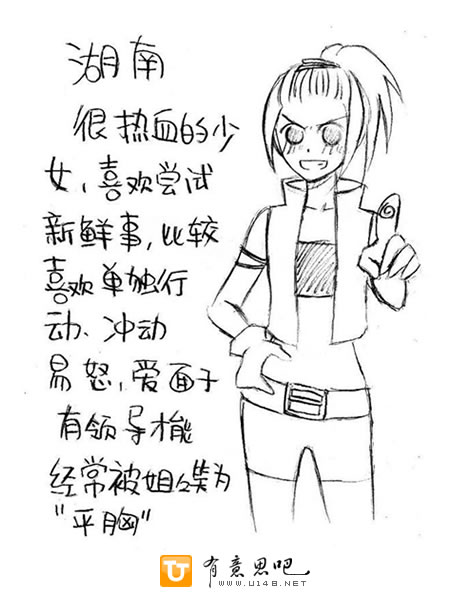 湖南
很热血的少
女、喜欢尝试
新鲜事,比较
喜欢单独行
动、冲动
易怒,爱面子
有领导才能
经常被姐姐笑为
"平胸"
有意思吧
WWW.U148.NET